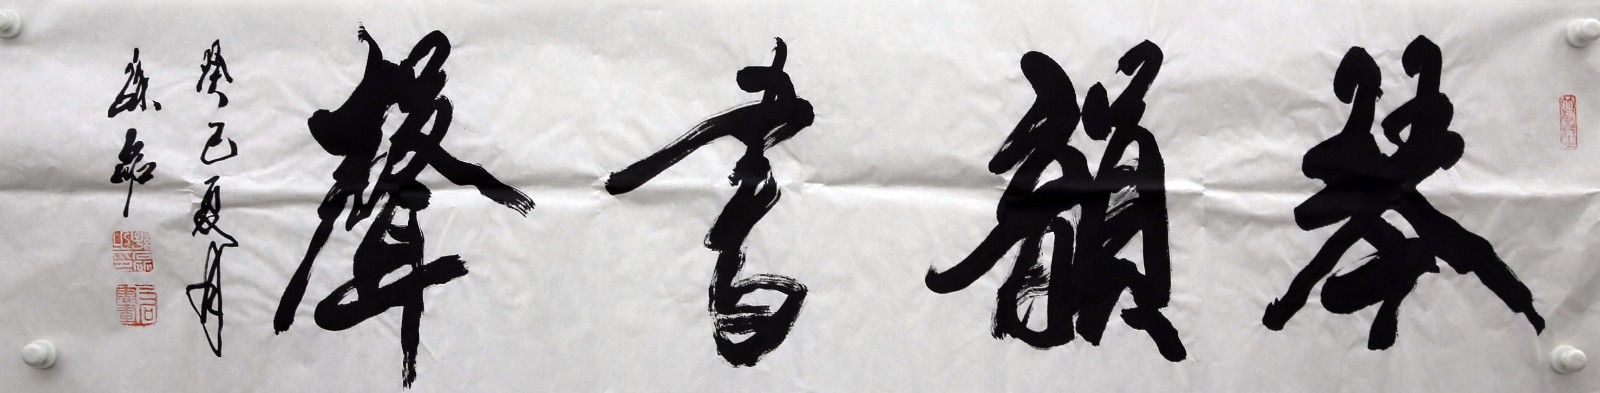 琴韻書聲
癸巳夏月